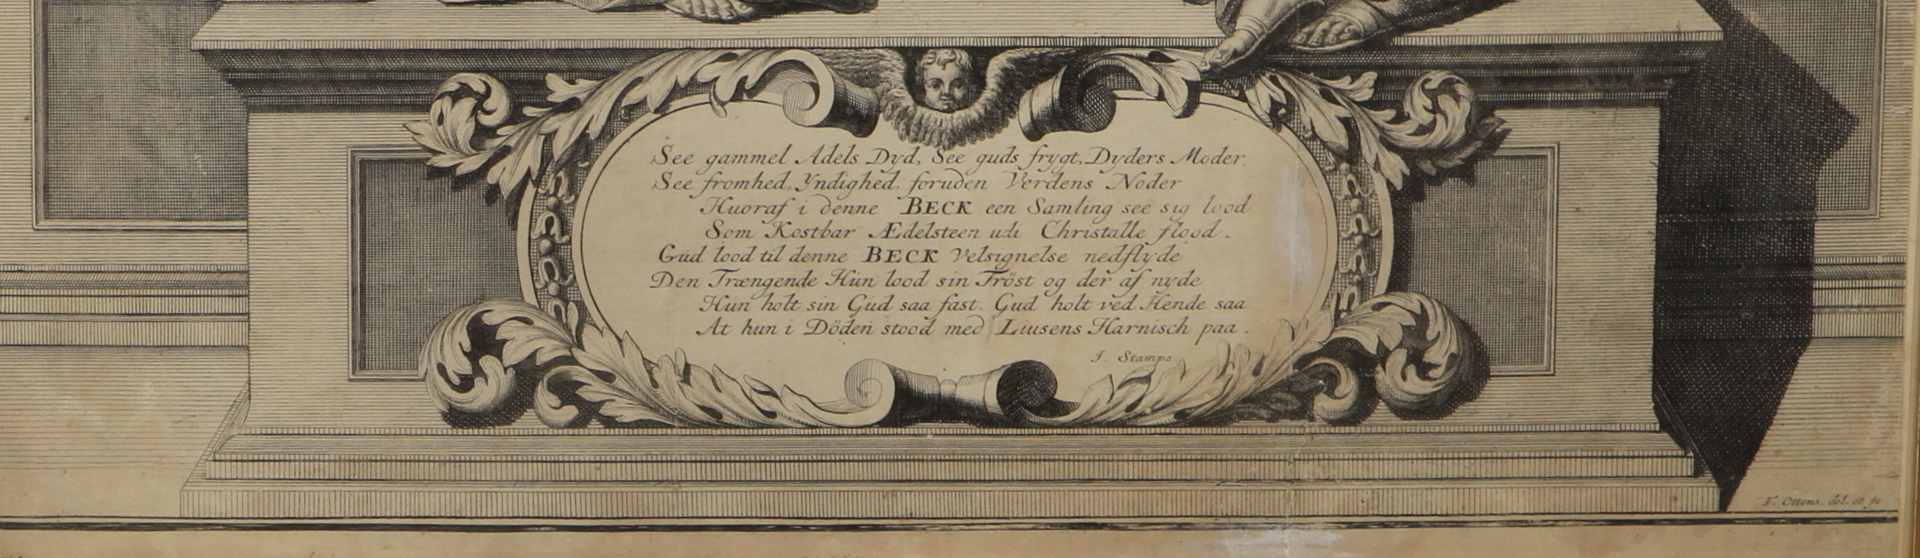 See gammel Adels Dyd, See guds frygt, Dyders Moder,
See fromhed, Yndighed, foruden Verdens Noder
Huoraf i denne BECK een Samling see sig lood
Som Kostbar Ædelsteen udi Christalle flood.
Gud lood til denne BECK Velsignelse nedflyde
Den Trængende Hun lood sin Tröst og der af nyde
Hun holt sin Gud saa fast. Gud holt ved Hende saa
At hun i Döden stood med Liusens Harnisch paa.
J. Stampe.
F. Ottens del. et fe